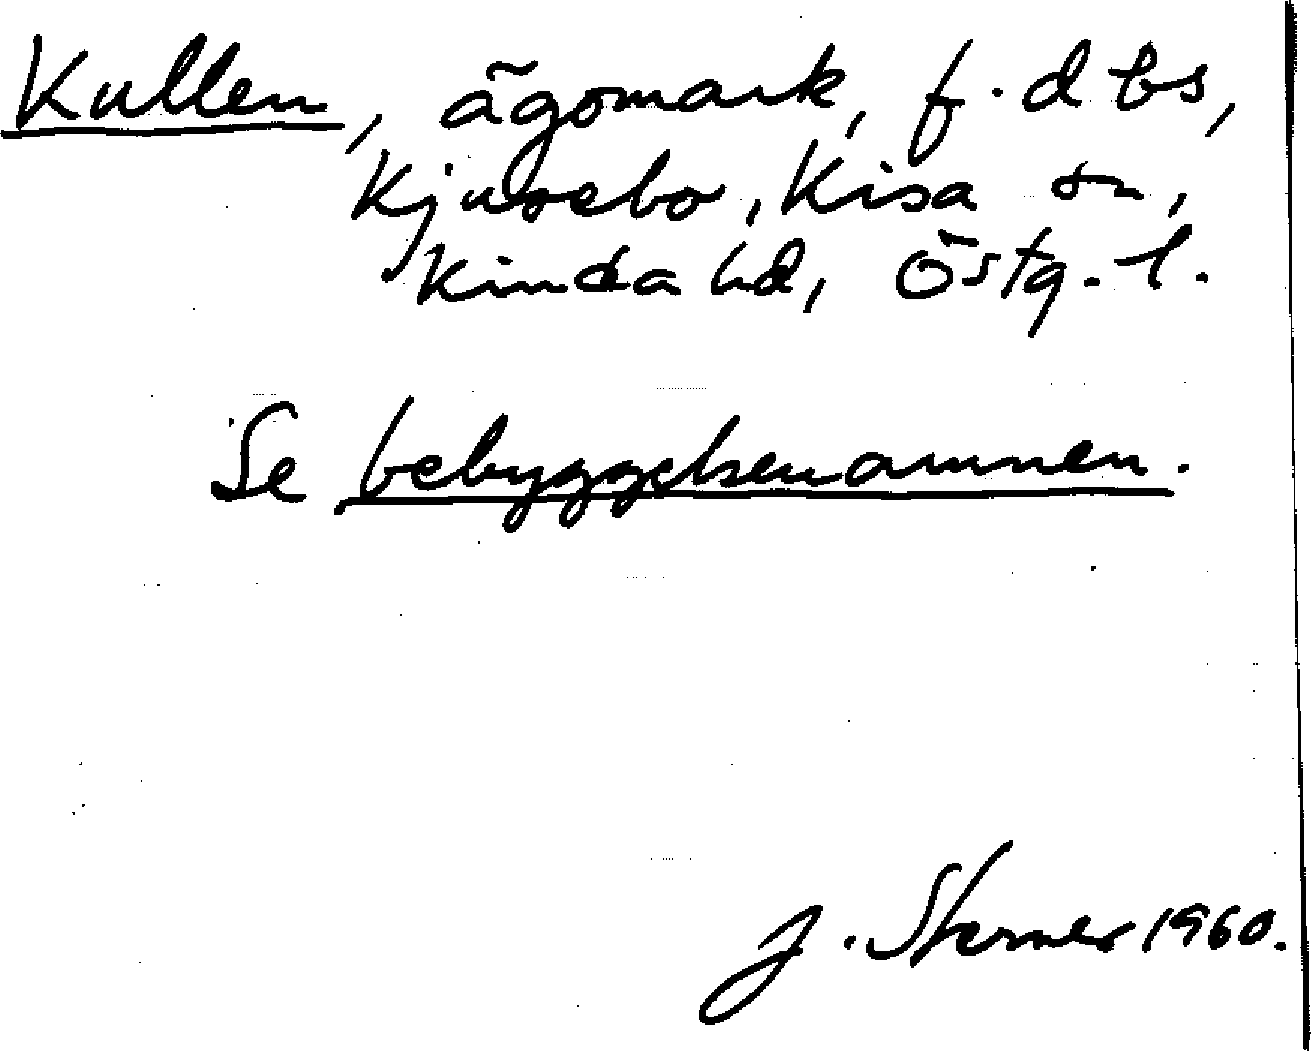 Kullen, ägomark, f.d bs,
Kjusebo, Kisa sn,
Kinda hd, Östg. l.
Se bebyggelsenamnen.
J. Sterner 1960.